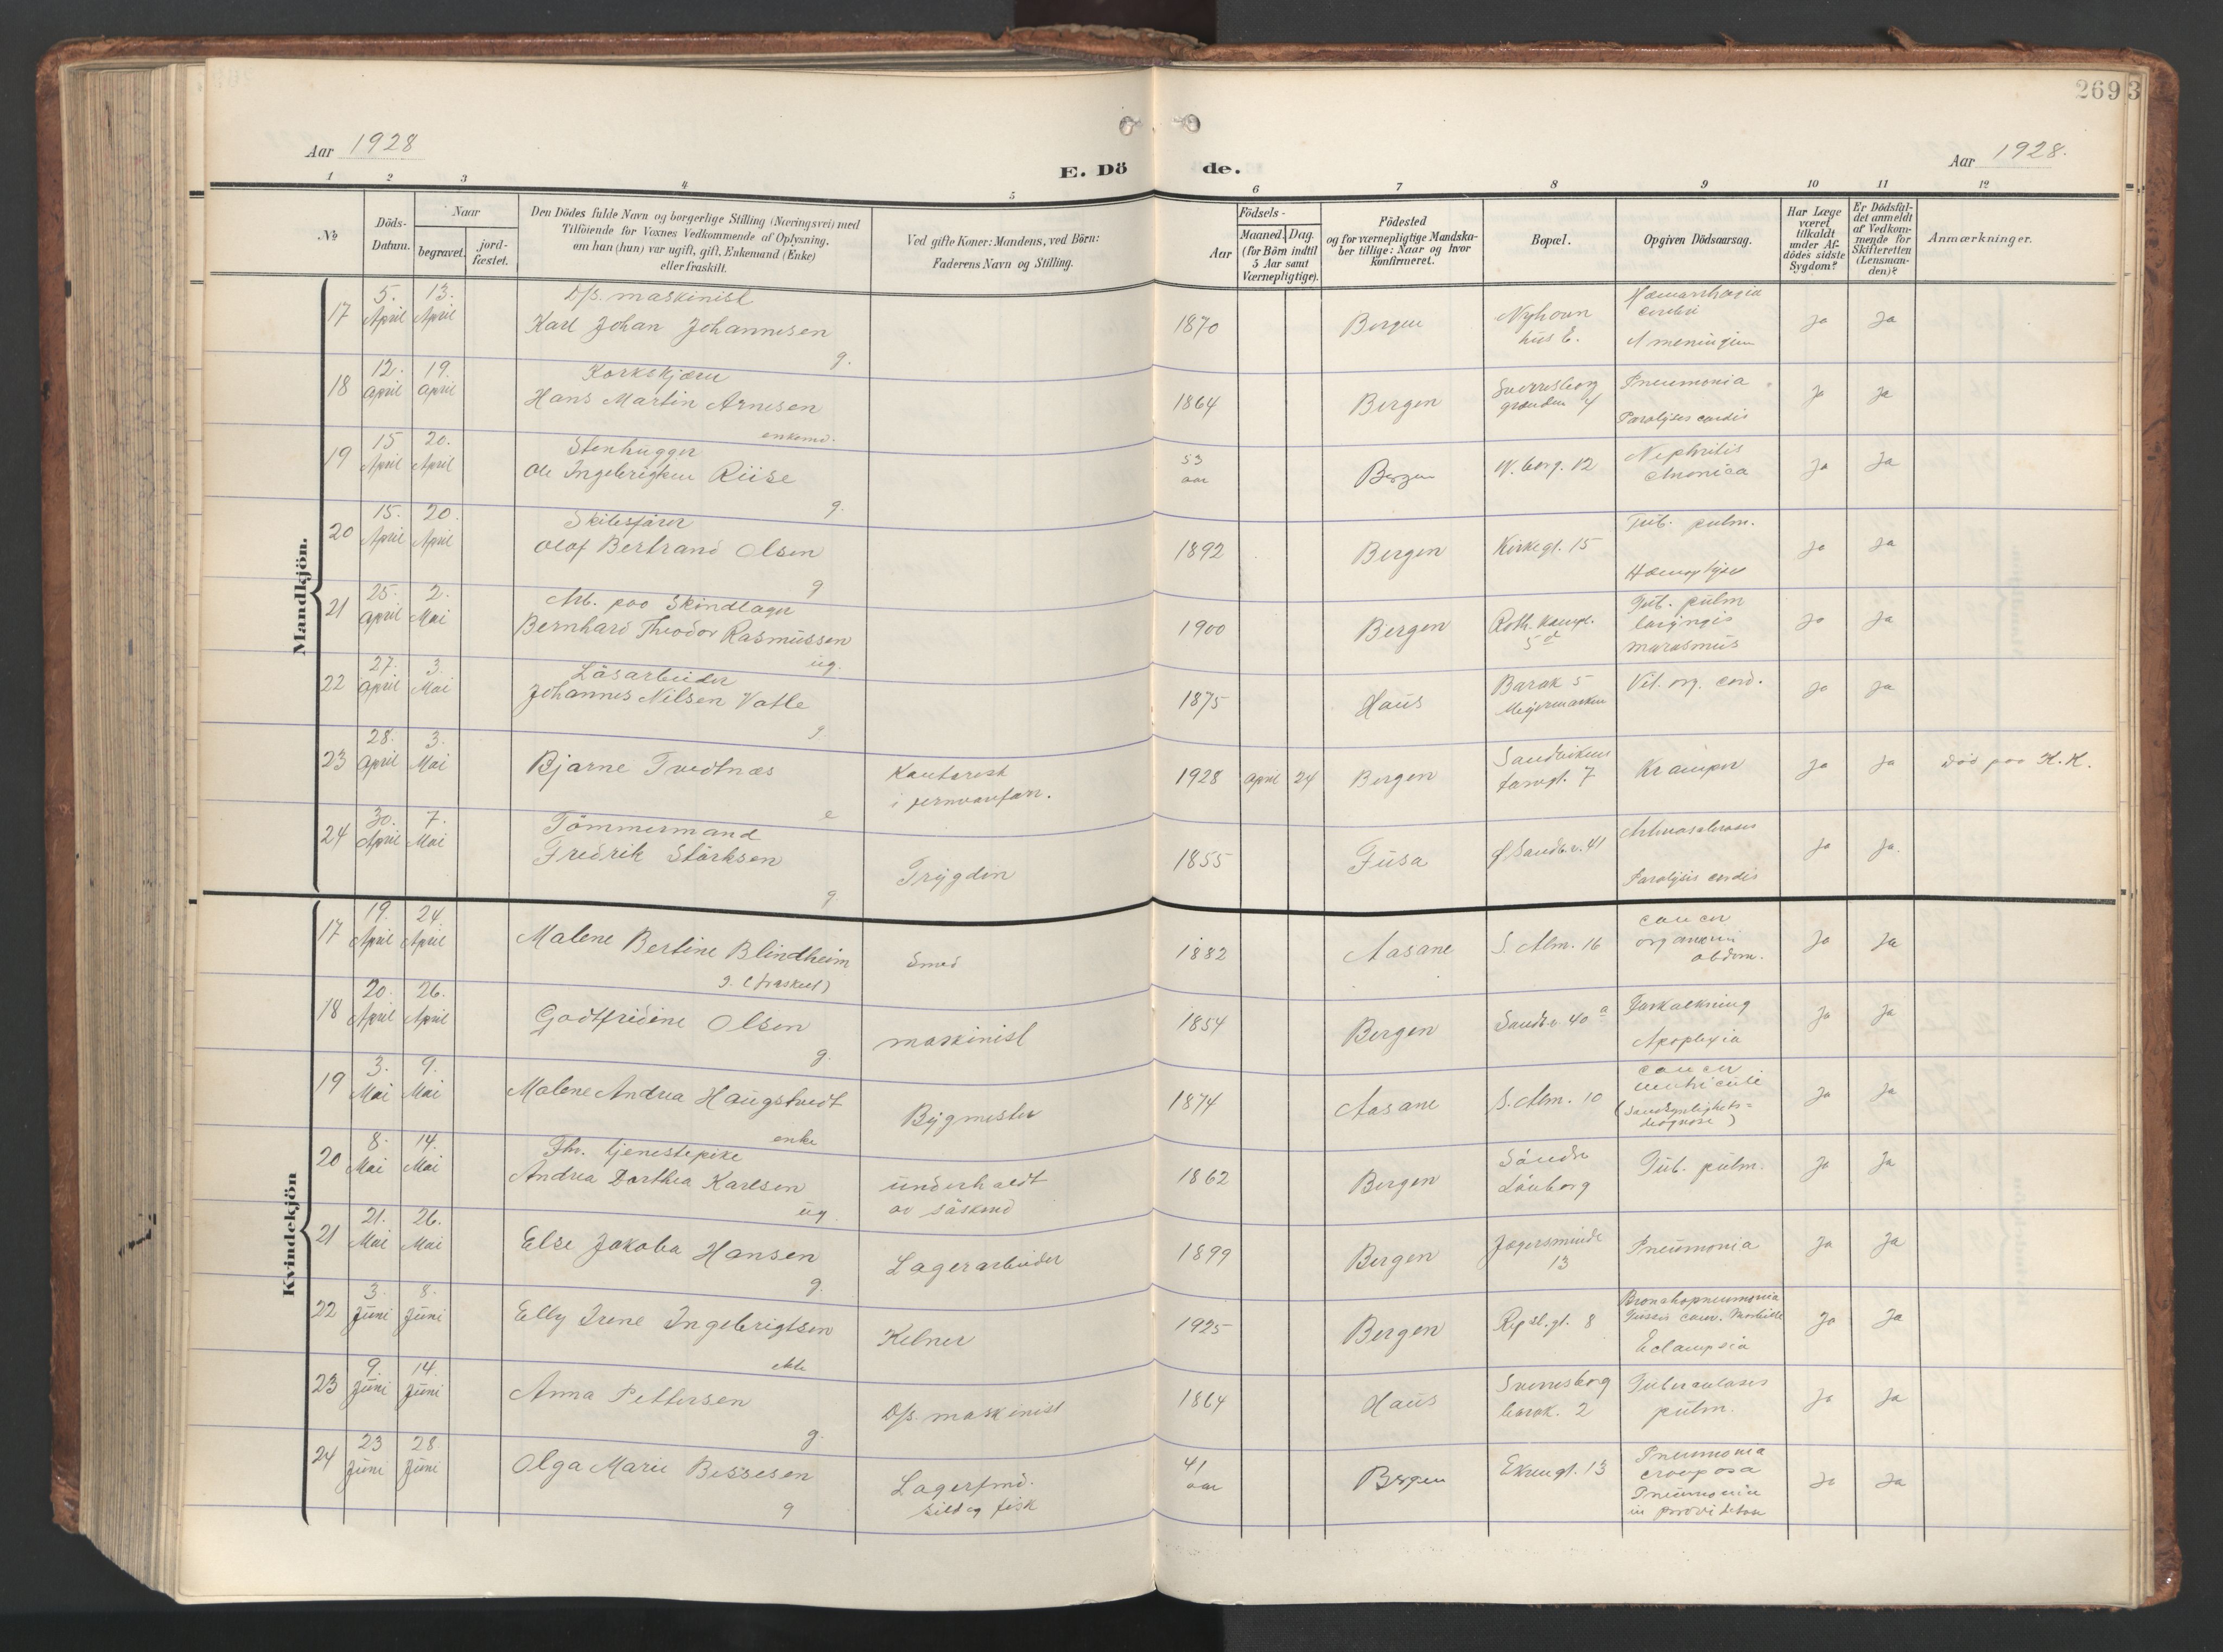 269 3
Aar 1928
Aar 1928.
E. Dö de.
1 2 3 4 5 6 7 8 9 10 11 12
№
Döds-
Datum.
Naar
begravet.
jord-
fæstet.
Den Dödes fulde Navn og borgerlige Stilling (Næringsvei) med
Tilföiende for Voxnes Vedkommende af Oplysning.
om han (hun) var ugift, gift, Enkemand (Enke)
eller fraskilt.
Ved gifte Koner: Mandens, ved Börn:
Faderens Navn og Stilling.
Födsels-
Aar
Maaned. Dag.
(for Börn indtil
5 Aar samt
Værnepligtige).
Födested
og for værnepligtige Mandska-
ber tillige: Naar og hvor
konfirmeret.
Bopæl.
Opgiven Dödsaarsag.
Har Læge
været
tilkaldt
under Af-
dödes sidste
Sygdom?
Er Dödsfal-
det anmeldt
af Vedkom-
mende for
Skifteretten
(Lensman-
den)?
Anmærkninger.
Mandkjön.
17 5. April 13. April D/s. maskinist
Karl Johan Johannesen g. 1870 Bergen Hæmorrhagia cerebri Ja Ja
18 12. April 19. April
Hans Martin Arnesen enkem. 1864 Bergen Sverresborg 4 Pneumonia Paralysis cordis Ja Ja
19 15 April 20. April Stenhugger
Ole Ingebrigtsen Riise g. 53 aar Bergen N. borg. 12 Nephritis chronica Ja Ja
20 15. April 20. April Skibsförer
Olof Bertrand Olsen g 1892 Bergen Kirkegt. 15 Tub. pulm. Ja Ja
21 25. April 2. Mai Arb. paa Skindlager
Bernhard Theodor Rasmussen ug. 1900 Bergen Roth. kaupt. 5 d Tub. pulm laryngis marasmus Ja Ja
22 27. April 3. Mai Läsarbeider
Johannes Nilsen Vatle g 1875 Haus Barak 5 Vit. org. cord. Ja Ja
23 28. April 3. Mai Bjarne Tvedtnæs e Kontorist
i jernvareforr. 1928 April 24 Bergen Sandvikens torvgt. 7 Kramper Ja Ja Död paa K.K.
24 30. April 7. Mai Tömmermand
Fredrik Störksen g Trygden 1855 Fusa Ö Sandv. v. 41 Paralysis cordis Ja Ja.
Kvindekjön
17 19. April 24. April Malene Bertine Blindheim
g. (fraskilt) Smed 1882 Aasane S. Alm. 16 cancer organum abdom. Ja Ja
18 20. April 26. April Godtfridine Olsen g. maskinist 1854 Bergen Sandv. v. 40 a Forkalkning Apoplexia Ja Ja
19 3. Mai 9. Mai Malene Andrea Haugstvedt enke Bygmester 1874 Aasane S. Alm. 10 cancer ventriculi
(Sandsynligheds-
diagnose) Ja Ja
20 8. Mai 14. Mai Fhv. tjenestepike
Andrea Dorthea Karlsen ug underholdt
av söskend 1862 Bergen Söndre Lönborg Tub. pulm. Ja Ja
21 21. Mai 26. Mai Else Jakoba Hansen g. Lagerarbeider 1899 Bergen Jægersminde 13 Pneumonia Ja Ja
22 3. Juni 8. Juni Elly Irene Ingebrigtsen ekte Kelner 1925 Bergen Repsl. gt. 8 Bronchopneumonia
Tussis conv. Morbilli
Eclampsia Ja Ja
23 9. Juni 14. Juni Anna Pettersen g. D/s. maskinist 1864 Haus Sverresborg barak. 2 Tuberculosis pulm. Ja Ja
24 23 Juni 28 Juni Olga Marie Bessesen g Lagerfmd.
sild og fisk 41 aar Bergen Ekrengt. 13 Pneumonia
crouposa
Pneumonia Ja Ja